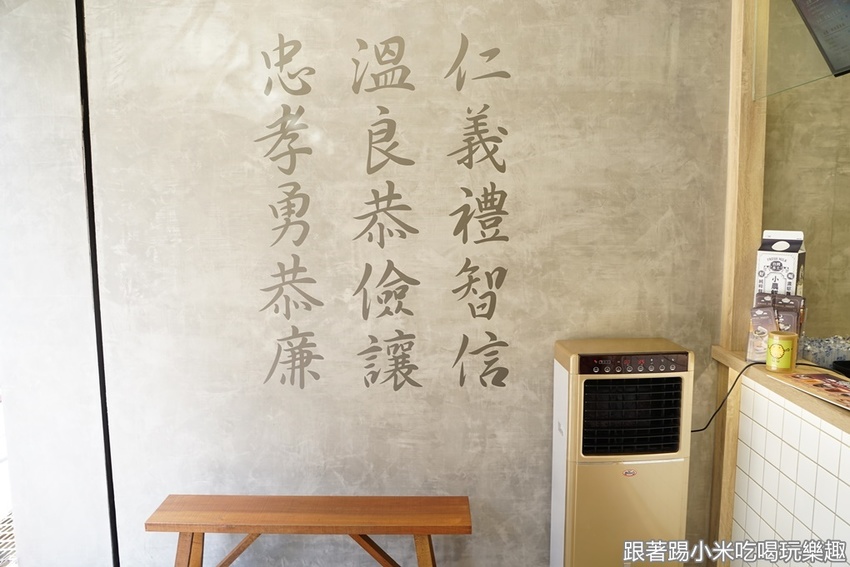 仁義禮智信
溫良恭儉讓
忠孝勇恭廉
小農
跟著踢小米吃喝玩樂趣